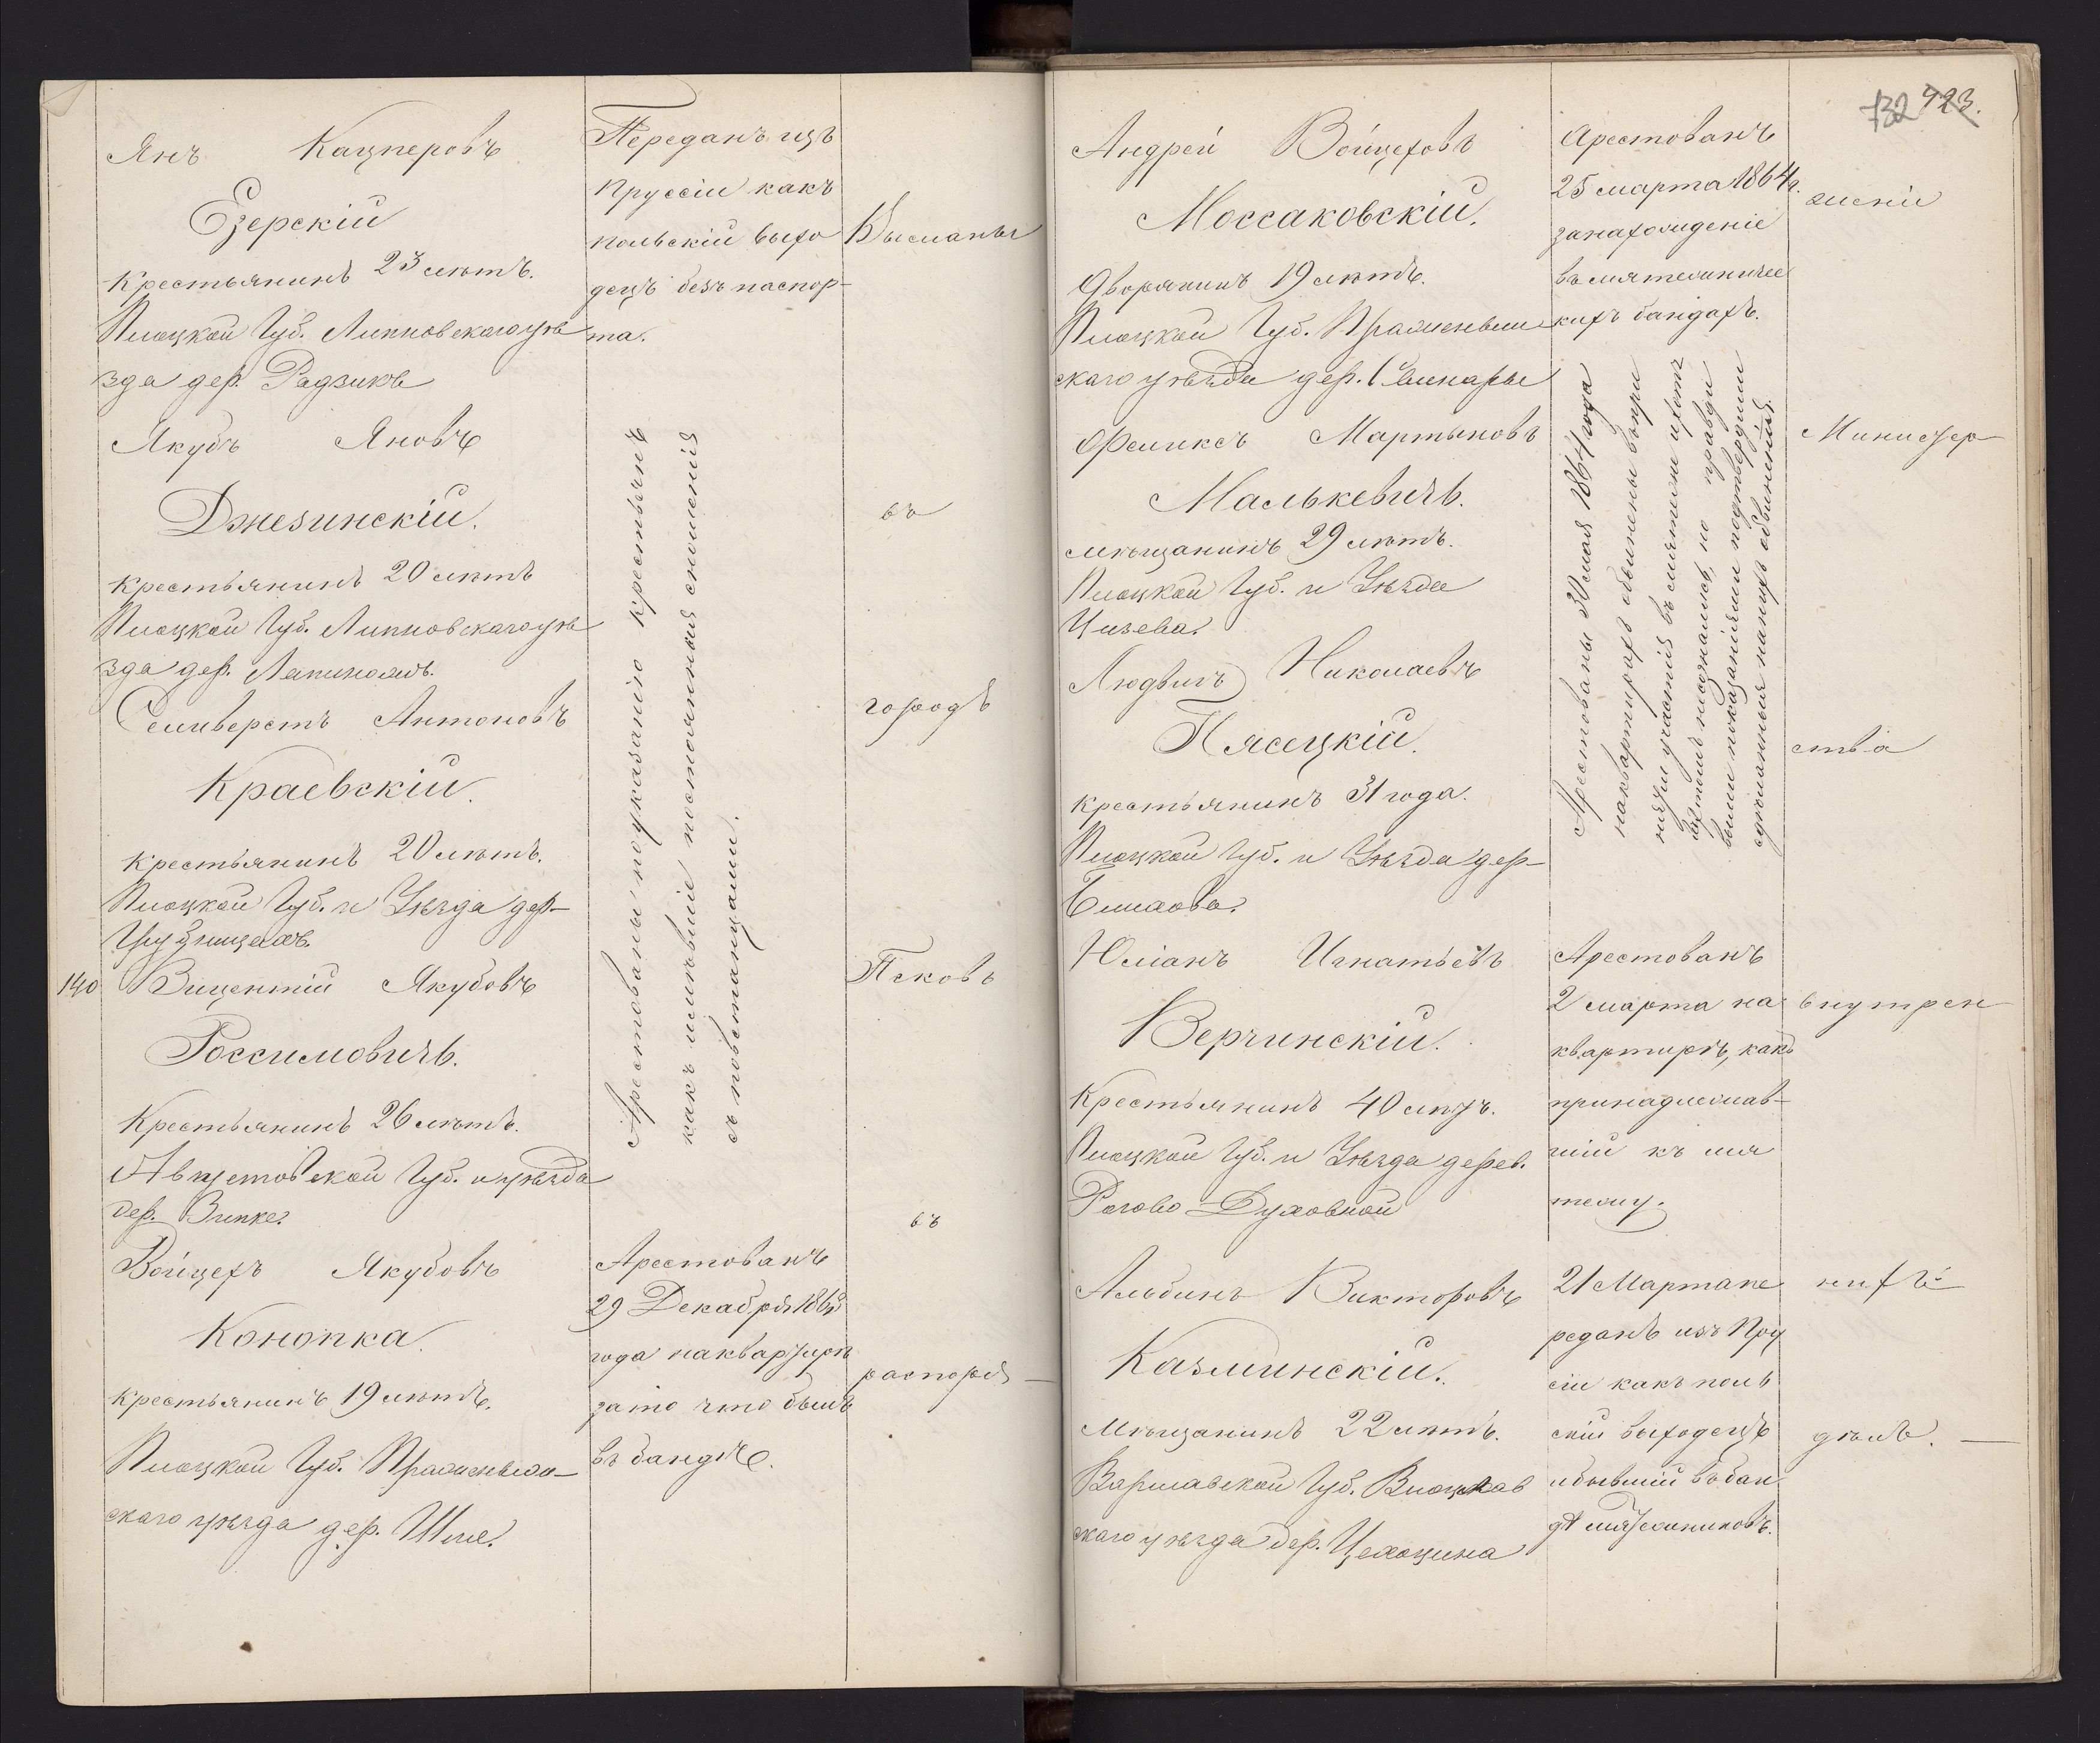 Янъ Кацперовъ
Езерскій
Крестьянинъ 23 лѣтъ.
Плоцкой Губ. Липновскаго уѣ
зда дер. Радзики
Якубъ Яновъ
Джезинскій.
Крестьянинъ 20 лѣтъ
Плоцкой Губ. Липновскаго уѣ
зда дер.
Селиверстъ Антоновъ
Краевскій.
Крестьянинъ 20 лѣтъ.
Плоцкой Губ. и Уѣзда дер-
140 Вицентій Якубовъ
Россимовичъ.
Крестьянинъ 26 лѣтъ.
Августовской Губ. и уѣзда
дер.
Войцехъ Якубовъ
Конопка.
Крестьянинъ 19 лѣтъ.
Плоцкой Губ. Праснышь-
скаго уѣзда дер.
Переданъ изъ
Пруссіи какъ
польскій выхо
децъ безъ паспор-
та.
Арестованы по указанію крестьянъ
какъ имѣвшіе постоянныя сношенія
съ повстанцами.
Арестованъ
29 Декабря 1863
года на квартирѣ
за то что былъ
въ бандѣ.
Высланы
въ
городъ
Псковъ
въ
распоря-
132 123.
Андрей Войцеховъ
Моссаковскій.
Дворянинъ 19 лѣтъ.
Плоцкой Губ. Праснышь
скаго уѣзда дер.
Феликсъ Мартыновъ
Малькевичъ.
мѣщанинъ 29 лѣтъ.
Плоцкой Губ. и Уѣзда
Людвигъ Николаевъ
Пясецкій.
Крестьянинъ 31 года.
Плоцкой Губ. и Уѣзда дер-
Юліанъ Игнатьевъ
Верчинскій.
Крестьянинъ 40 лѣтъ.
Плоцкой Губ. и Уѣзда дерев.
Рогово-Духовной
Альбинъ Викторовъ
Казминскій.
Мѣщанинъ 22 лѣтъ.
Варшавской Губ. Влоцлав
скаго уѣзда дер. Цехоцина
Арестованъ
25 марта 1864 г.
за нахожденіе
въ мятежничес
кихъ бандахъ.
Арестованы 30 мая 1864 года
на квартирахъ обвинены въ при
нятіи участія въ мятеже и хотя
въ томъ несознались, но правди
выми показаніями подтвердили
сдѣланныя на нихъ обвиненія.
Арестованъ
2 марта на
квартирѣ, какъ
принадлежав-
шій къ мя
тежу.
21 Марта пе
реданъ изъ Пру
сіи какъ поль
скій выходецъ
и бывшій въ бан
дѣ мятежниковъ.
женіи
Министер-
ства
внутрен
нихъ-
дѣлъ.